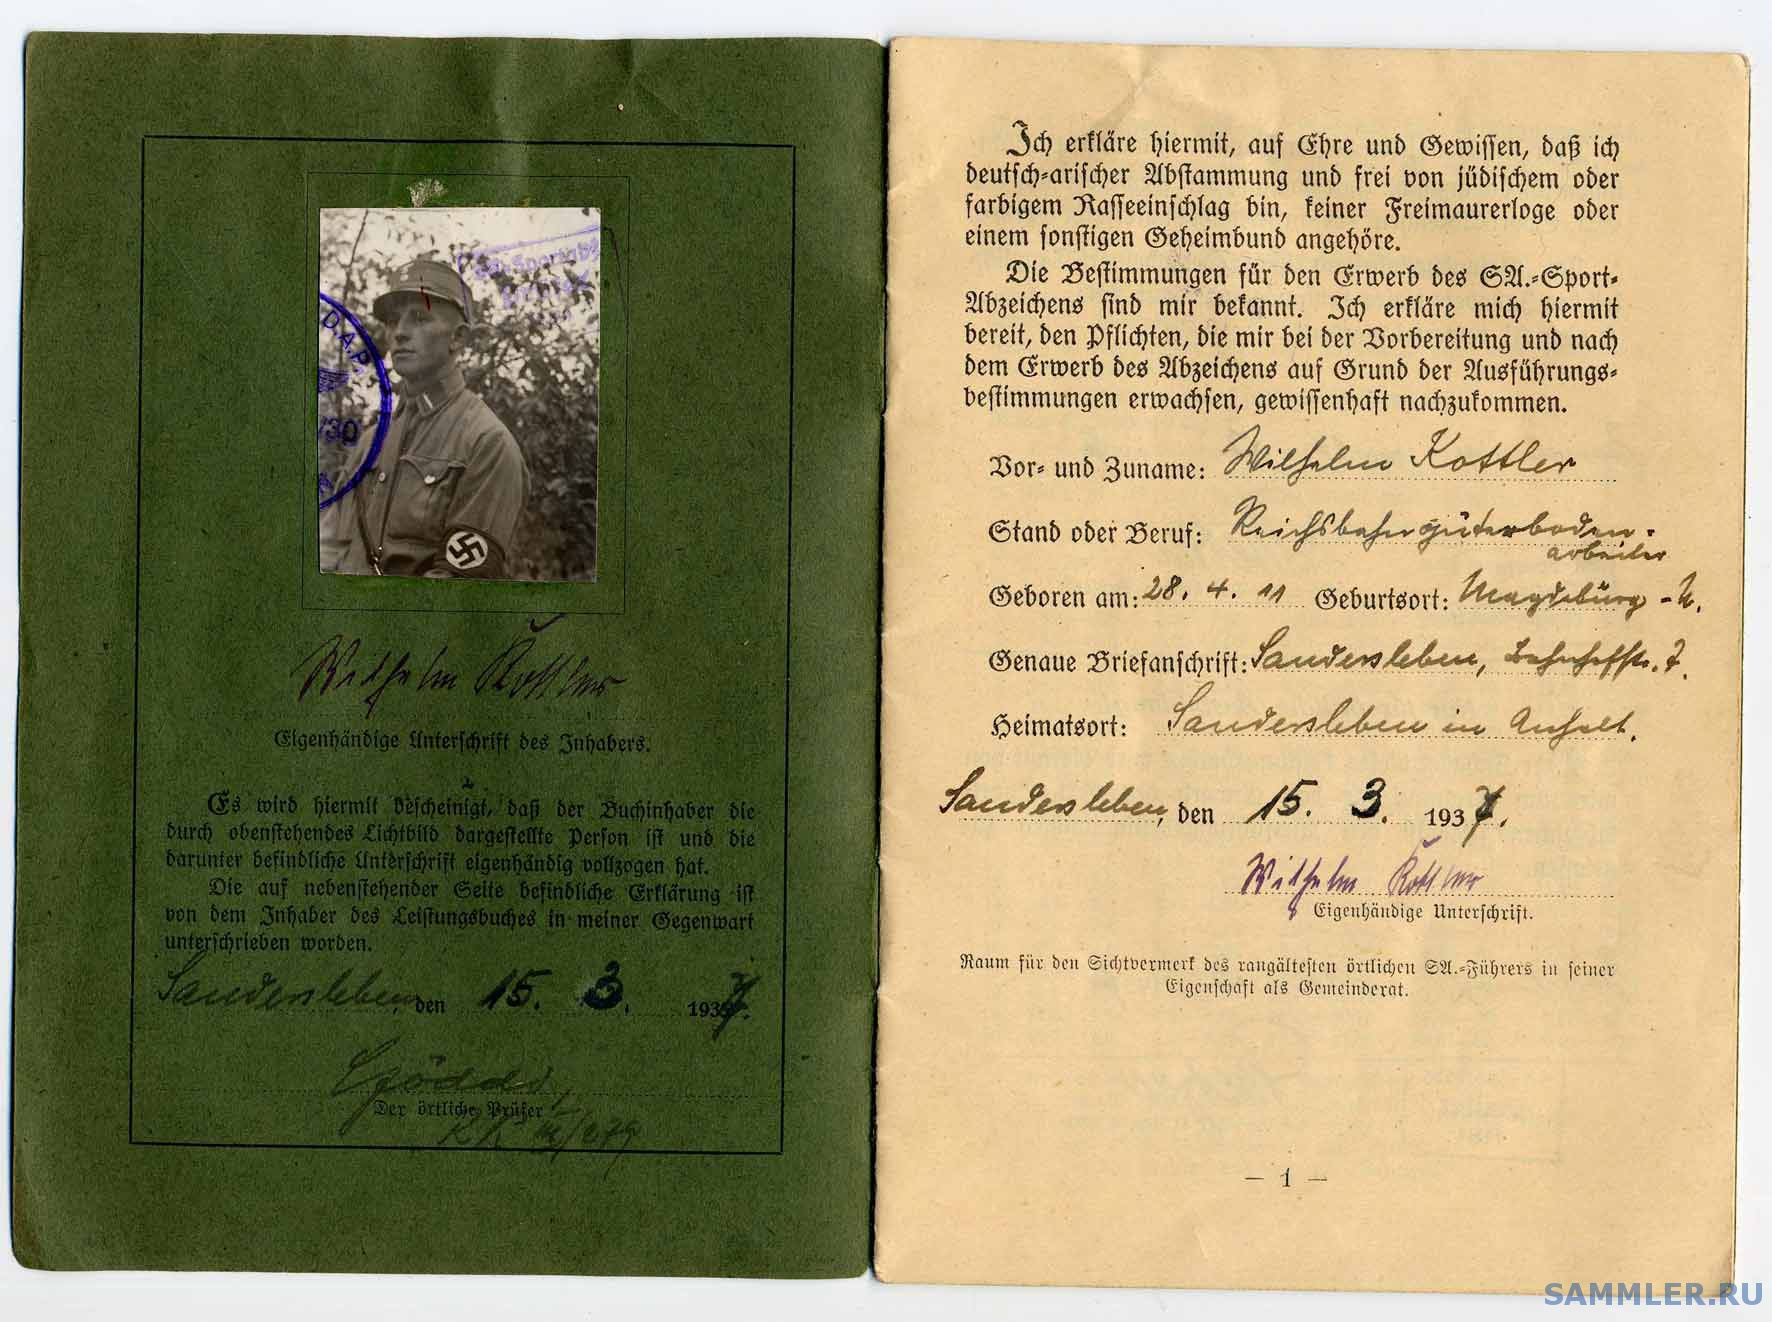 D.A.P.
/30
A
Wilhelm Kottler
Eigenhändige Unterschrift des Inhabers.
Es wird hiermit bescheinigt, daß der Buchinhaber die
durch obenstehendes Lichtbild dargestellte Person ist und die
darunter befindliche Unterschrift eigenhändig vollzogen hat.
Die auf nebenstehender Seite befindliche Erklärung ist
von dem Inhaber des Leistungsbuches in meiner Gegenwart
unterschrieben worden.
Sandersleben, den 15. 3. 1937.
Der örtliche Prüfer
Ich erkläre hiermit, auf Ehre und Gewissen, daß ich
deutsch-arischer Abstammung und frei von jüdischem oder
farbigem Rasseeinschlag bin, keiner Freimaurerloge oder
einem sonstigen Geheimbund angehöre.
Die Bestimmungen für den Erwerb des SA.-Sport-
Abzeichens sind mir bekannt. Ich erkläre mich hiermit
bereit, den Pflichten, die mir bei der Vorbereitung und nach
dem Erwerb des Abzeichens auf Grund der Ausführungs-
bestimmungen erwachsen, gewissenhaft nachzukommen.
Vor- und Zuname: Wilhelm Kottler
Stand oder Beruf: Reichsbahngüterboden-
arbeiter
Geboren am: 28. 4. 11 Geburtsort: Magdeburg - N.
Genaue Briefanschrift: Sandersleben, Bahnhofstr. 7.
Heimatsort: Sandersleben in Anhalt.
Sandersleben, den 15. 3. 1937.
Wilhelm Kottler
Eigenhändige Unterschrift.
Raum für den Sichtvermerk des rangältesten örtlichen SA.-Führers in seiner
Eigenschaft als Gemeinderat.
— 1 —
SAMMLER.RU